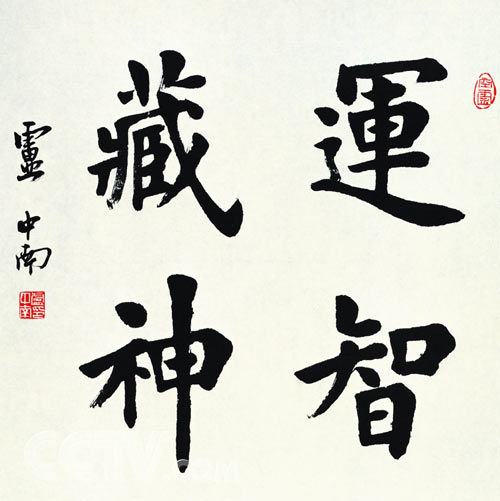 運智
藏神
盧中南
CCTV.com